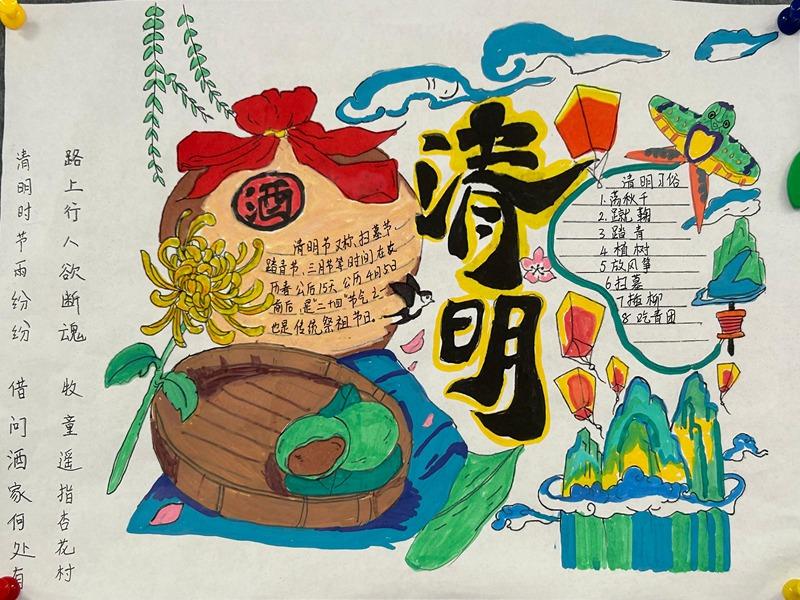 清明时节雨纷纷
路上行人欲断魂
借问酒家何处有
牧童遥指杏花村
酒
清明节又称、扫墓节、
踏青节、三月节等时间在农
历春分后15天公历4月5日
前后,是“二十四”节气之一
也是传统祭祖节日。
清明
清明习俗
1.荡秋千
2.蹴鞠
3踏青
4植树
5放风筝
6扫墓
7插柳
8吃青团